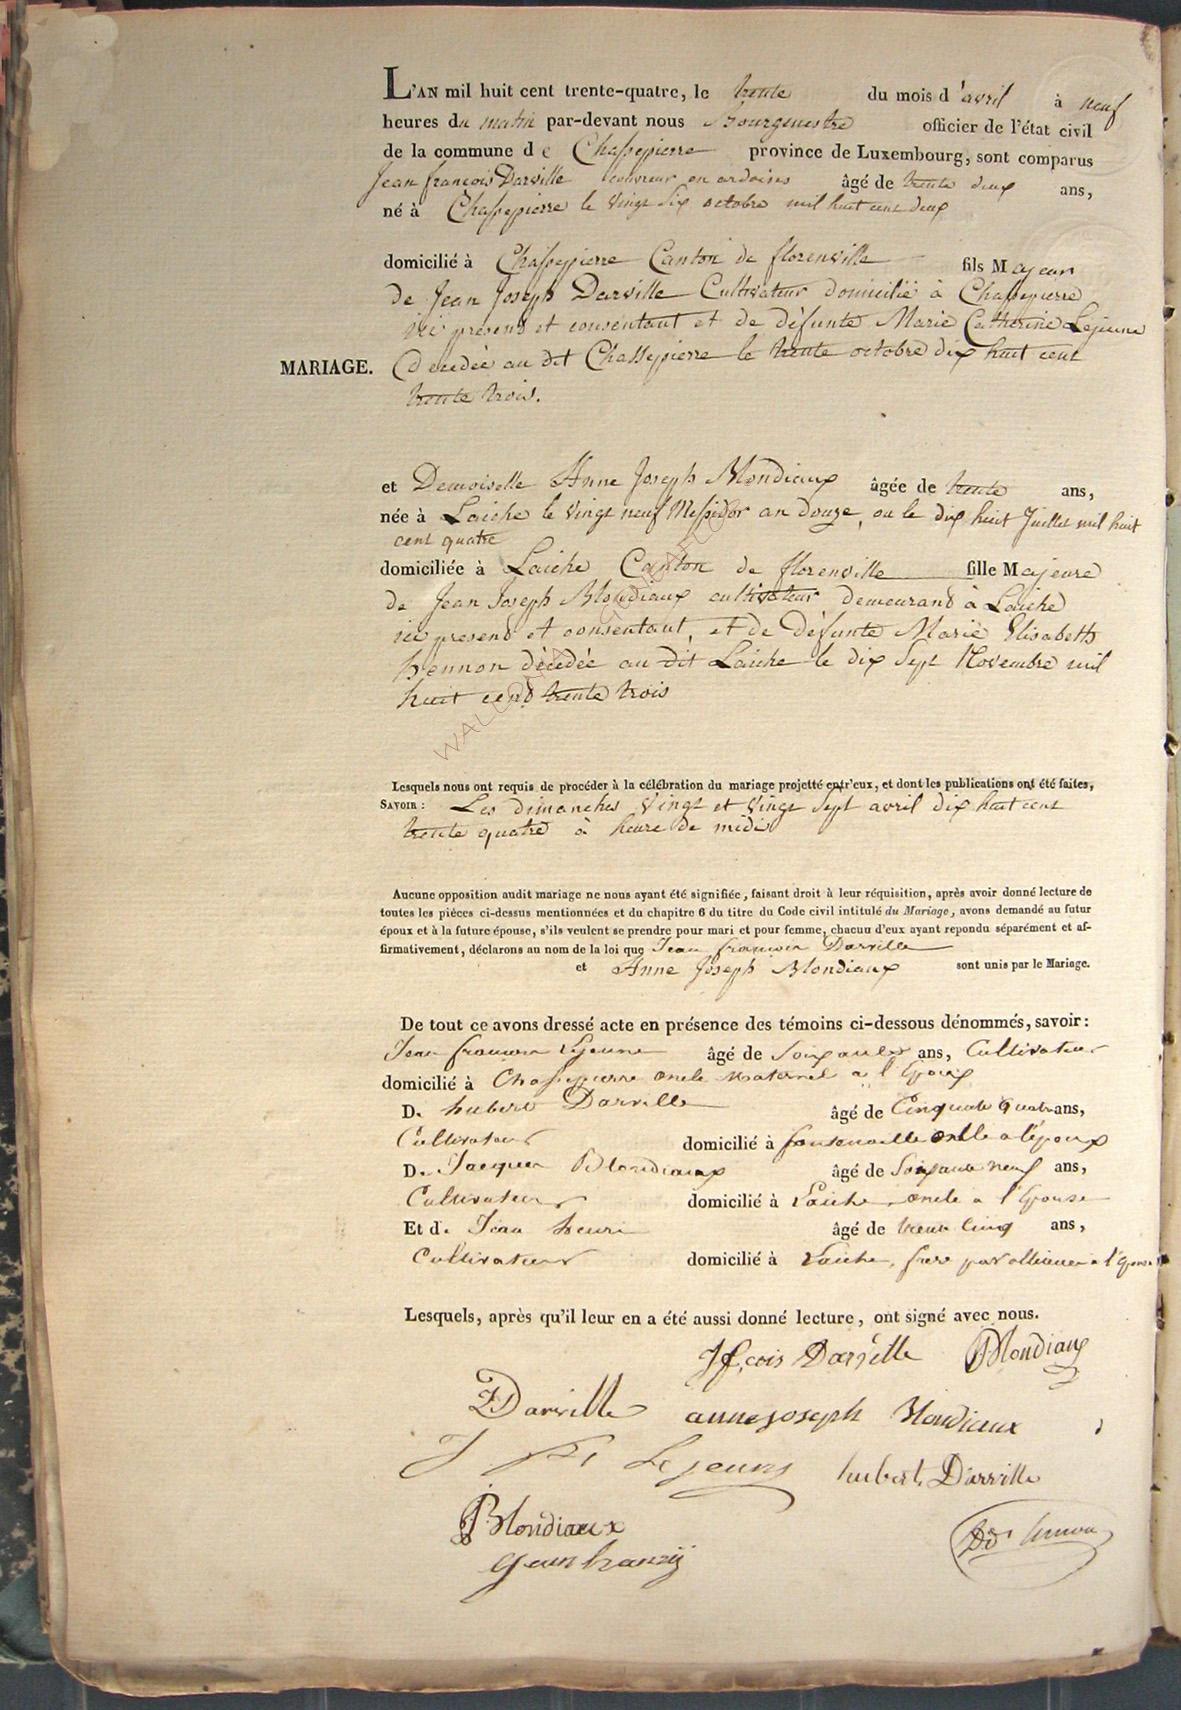 L'AN mil huit cent trente-quatre, le trente du mois d'avril à neuf
heures du matin par-devant nous Bourgmestre officier de l'état civil
de la commune de Chassepierre province de Luxembourg, sont comparus
Jean françois Darville couvreur en ardoises âgé de trente deux ans,
né à Chassepierre le vingt six octobre mil huit cent deux
domicilié à Chassepierre Canton de florenville fils Majeur
de Jean Joseph Darville Cultivateur domicilié à Chassepierre
ici present et consentant et de défunte Marie Catherine Lejeune
MARIAGE. Decedée au dit Chassepierre le trente octobre dix huit cent
trente trois.
et Demoiselle Anne Joseph Blondiaux âgée de trente ans,
née à Laiche le vingt neuf Messidor an douze, ou le dix huit Juillet mil huit
cent quatre
domiciliée à Laiche Canton de florenville fille Majeure
de Jean Joseph Blondiaux cultivateur demeurant à Laiche
ici present et consentant, et de défunte Marie Elisabeth
hennon décedée au dit Laiche le dix sept Novembre mil
huit cent trente trois
WALLONIA
Lesquels nous ont requis de procéder à la célébration du mariage projetté entr'eux, et dont les publications ont été faites,
SAVOIR : Les dimanches vingt et vingt sept avril dix huit cent
trente quatre à heure de midi
Aucune opposition audit mariage ne nous ayant été signifiée, faisant droit à leur réquisition, après avoir donné lecture de
toutes les pièces ci-dessus mentionnées et du chapitre 6 du titre du Code civil intitulé du Mariage, avons demandé au futur
époux et à la future épouse, s'ils veulent se prendre pour mari et pour femme, chacun d'eux ayant repondu séparément et af-
firmativement, déclarons au nom de la loi que Jean francois Darville
et Anne Joseph Blondiaux sont unis par le Mariage.
De tout ce avons dressé acte en présence des témoins ci-dessous dénommés, savoir :
Jean francois Lejeune âgé de Soixante ans, Cultivateur
domicilié à Chassepierre oncle maternel a l'Epoux
D. hubert Darville âgé de Cinquate quatre ans,
Cultivateur domicilié à fontenaille oncle a l'époux
D. Jacques Blondiaux âgé de Soixante neuf ans,
Cultivateur domicilié à Laiche oncle a l'Epouse
Et d. Jean henri âgé de trente cinq ans,
Cultivateur domicilié à Laiche, frere par alliance a l'Epouse
Lesquels, après qu'il leur en a été aussi donné lecture, ont signé avec nous.
J f,cois Darville Blondiaux
Darville anne joseph Blondiaux
J fs Lejeune hubert Darville
Blondiaux